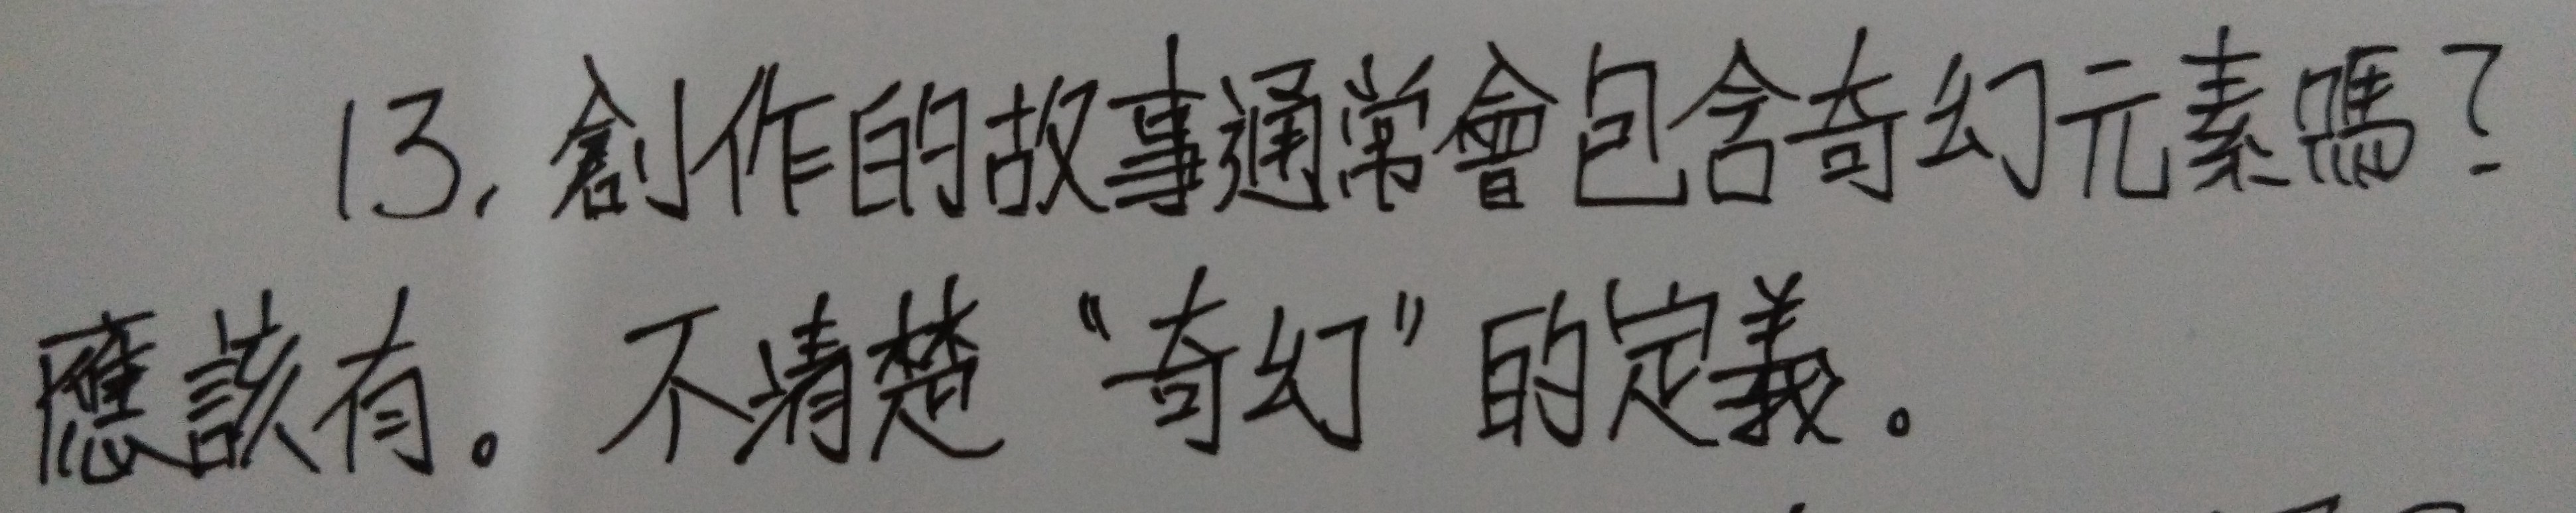 13. 創作的故事通常會包含奇幻元素嗎？
應該有。不清楚“奇幻”的定義。